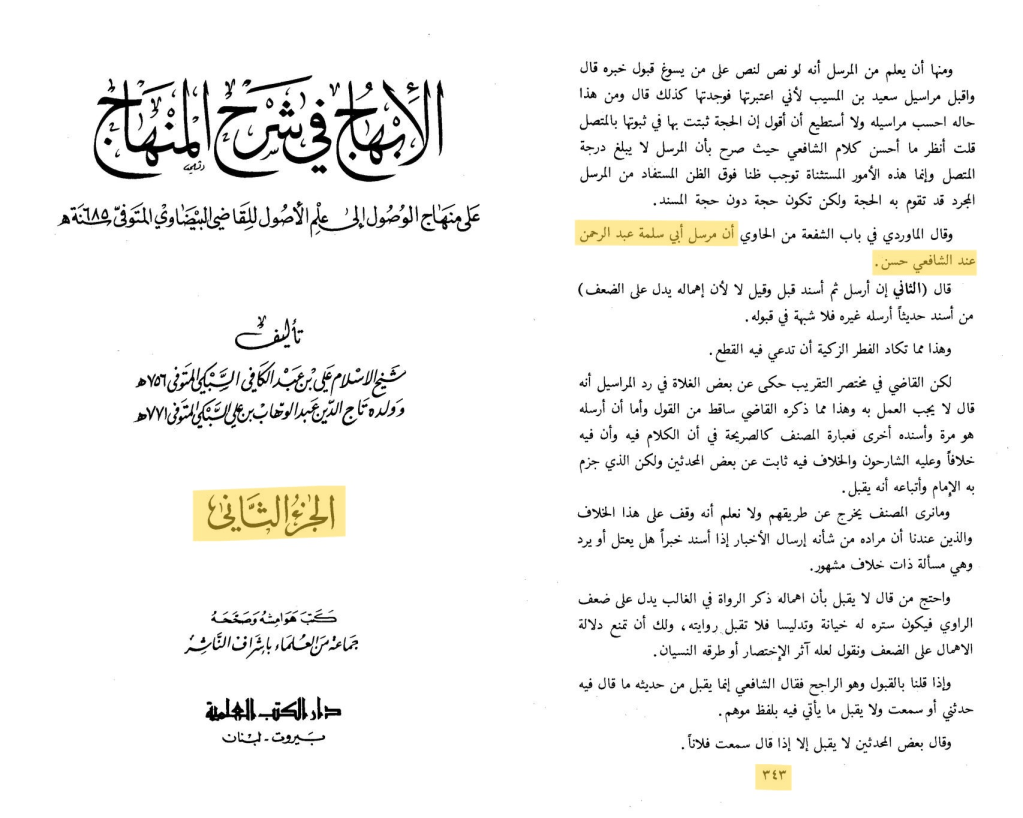 ومنها أن يعلم من المرسل أنه لو نص لنص على من يسوغ قبول خبره قال
واقبل مراسيل سعيد بن المسيب لأني اعتبرتها فوجدتها كذلك قال ومن هذا
حاله احسب مراسيله ولا أستطيع أن أقول إن الحجة ثبتت بها في ثبوتها بالمتصل
قلت أنظر ما أحسن كلام الشافعي حيث صرح بأن المرسل لا يبلغ درجة
المتصل وإنما هذه الأمور المستثناة توجب ظنا فوق الظن المستفاد من المرسل
المجرد قد تقوم به الحجة ولكن تكون حجة دون حجة المسند.
وقال الماوردي في باب الشفعة من الحاوي أن مرسل أبي سلمة عبد الرحمن
عند الشافعي حسن.
قال (الثاني إن أرسل ثم أسند قبل وقيل لا لأن إهماله يدل على الضعف)
من أسند حديثاً أرسله غيره فلا شبهة في قبوله.
وهذا مما تكاد الفطر الزكية أن تدعي فيه القطع.
لكن القاضي في مختصر التقريب حكى عن بعض الغلاة في رد المراسيل أنه
قال لا يجب العمل به وهذا مما ذكره القاضي ساقط من القول وأما أن أرسله
هو مرة وأسنده أخرى فعبارة المصنف كالصريحة في أن الكلام فيه وأن فيه
خلافاً وعليه الشارحون والخلاف فيه ثابت عن بعض المحدثين ولكن الذي جزم
به الإمام وأتباعه أنه يقبل.
ومانرى المصنف يخرج عن طريقهم ولا نعلم أنه وقف على هذا الخلاف
والذين عندنا أن مراده من شأنه إرسال الأخبار إذا أسند خبراً هل يعتل أو يرد
وهي مسألة ذات خلاف مشهور.
واحتج من قال لا يقبل بأن اهماله ذكر الرواة في الغالب يدل على ضعف
الراوي فيكون ستره له خيانة وتدليسا فلا تقبل روايته، ولك أن تمنع دلالة
الاهمال على الضعف ونقول لعله آثر الإختصار أو طرقه النسيان.
وإذا قلنا بالقبول وهو الراجح فقال الشافعي إنما يقبل من حديثه ما قال فيه
حدثني أو سمعت ولا يقبل ما يأتي فيه بلفظ موهم.
وقال بعض المحدثين لا يقبل إلا إذا قال سمعت فلاناً.
٣٤٣
الإبهاج في شرح المنهاج
على منهاج الوصول إلى علم الأصول للقاضي البيضاوي المتوفى سنة ٦٨٥ هـ
تأليف
شيخ الاسلام علي بن عبد الكافي السبكي المتوفى ٧٥٦ هـ
وولده تاج الدين عبد الوهاب بن علي السبكي المتوفى ٧٧١ هـ
الجزء الثاني
كتب هوامشه وصححه
جماعة من العلماء بإشراف الناشر
دار الكتب العلمية
بيروت - لبنان